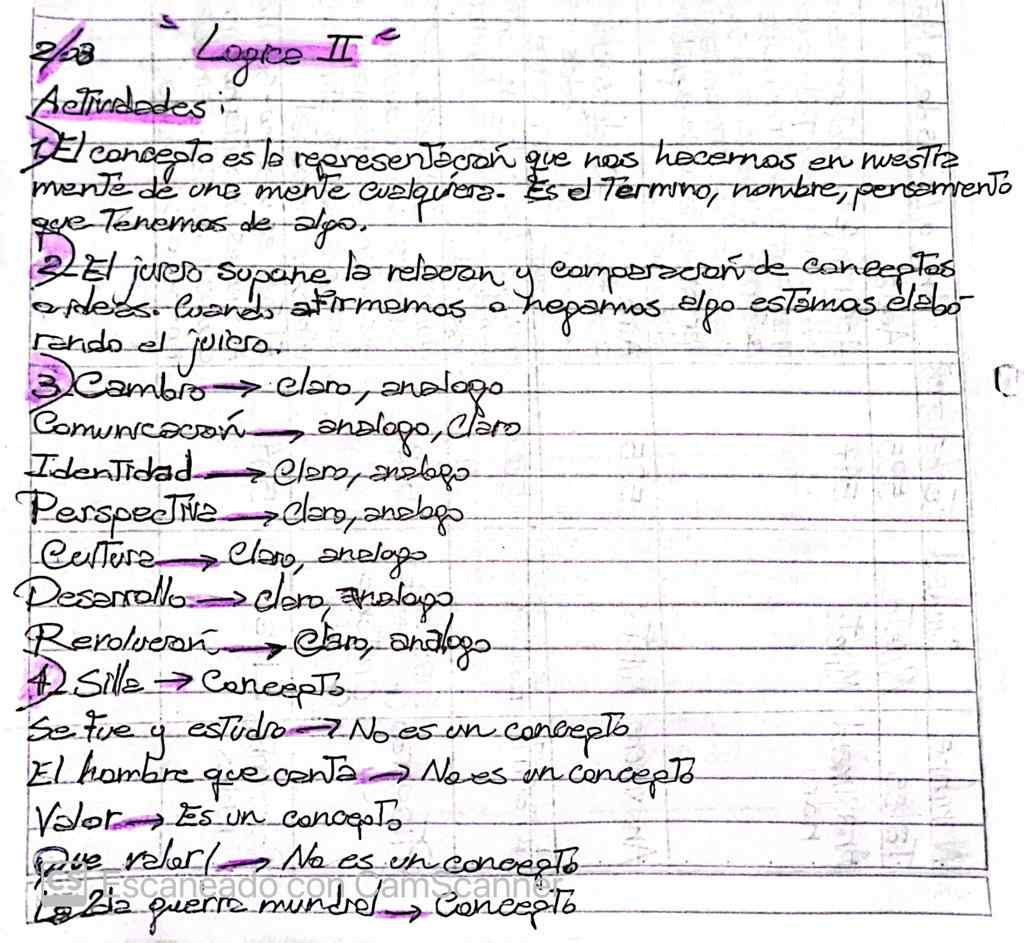 2/08 " Logica II "
Actividades:
1) El concepto es la representación que nos hacemos en nuestra
mente de una mente cualquiera. Es el Término, nombre, pensamiento
que Tenemos de algo.
2) El juicio supone la relación y comparación de conceptos
o ideas. Cuando afirmamos o negamos algo estamos elabo-
rando el juicio.
3) Cambio → Claro, analogo
Comunicación → analogo, Claro
Identidad → Claro, analogo
Perspectiva → Claro, analogo
Cultura → Claro, analogo
Desarrollo → Claro, analogo
Revolución → Claro, análogo
4) Silla → Concepto
Se fue y estudio → No es un concepto
El hombre que canta → No es un concepto
Valor → Es un concepto
Que valor! → No es un concepto
Escaneado con CamScanner
La 2da guerra mundial → Concepto